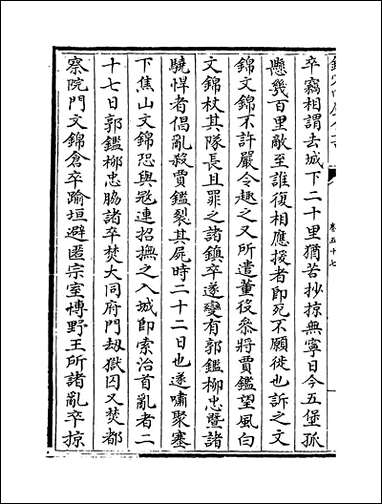 卒竊相謂去城下二十里猶苦抄掠無寧日今五堡孤
懸幾百里敵至誰復相應援者即死不願徙也訴之文
錦文錦不許嚴令趣之又所遣董役叅將賈鑑望風白
文錦杖其隊長且罪之諸鎮卒遂變有郭鑑柳忠曁諸
驍悍者倡亂殺賈鑑裂其屍時二十二日也遂嘯聚塞
下焦山文錦恐與寇連招撫之入城即索治首亂者二
十七日郭鑑柳忠脇諸卒焚大同府門刼獄囚又焚都
察院門文錦倉卒踰垣避匿宗室博野王所諸亂卒掠
卷五十七